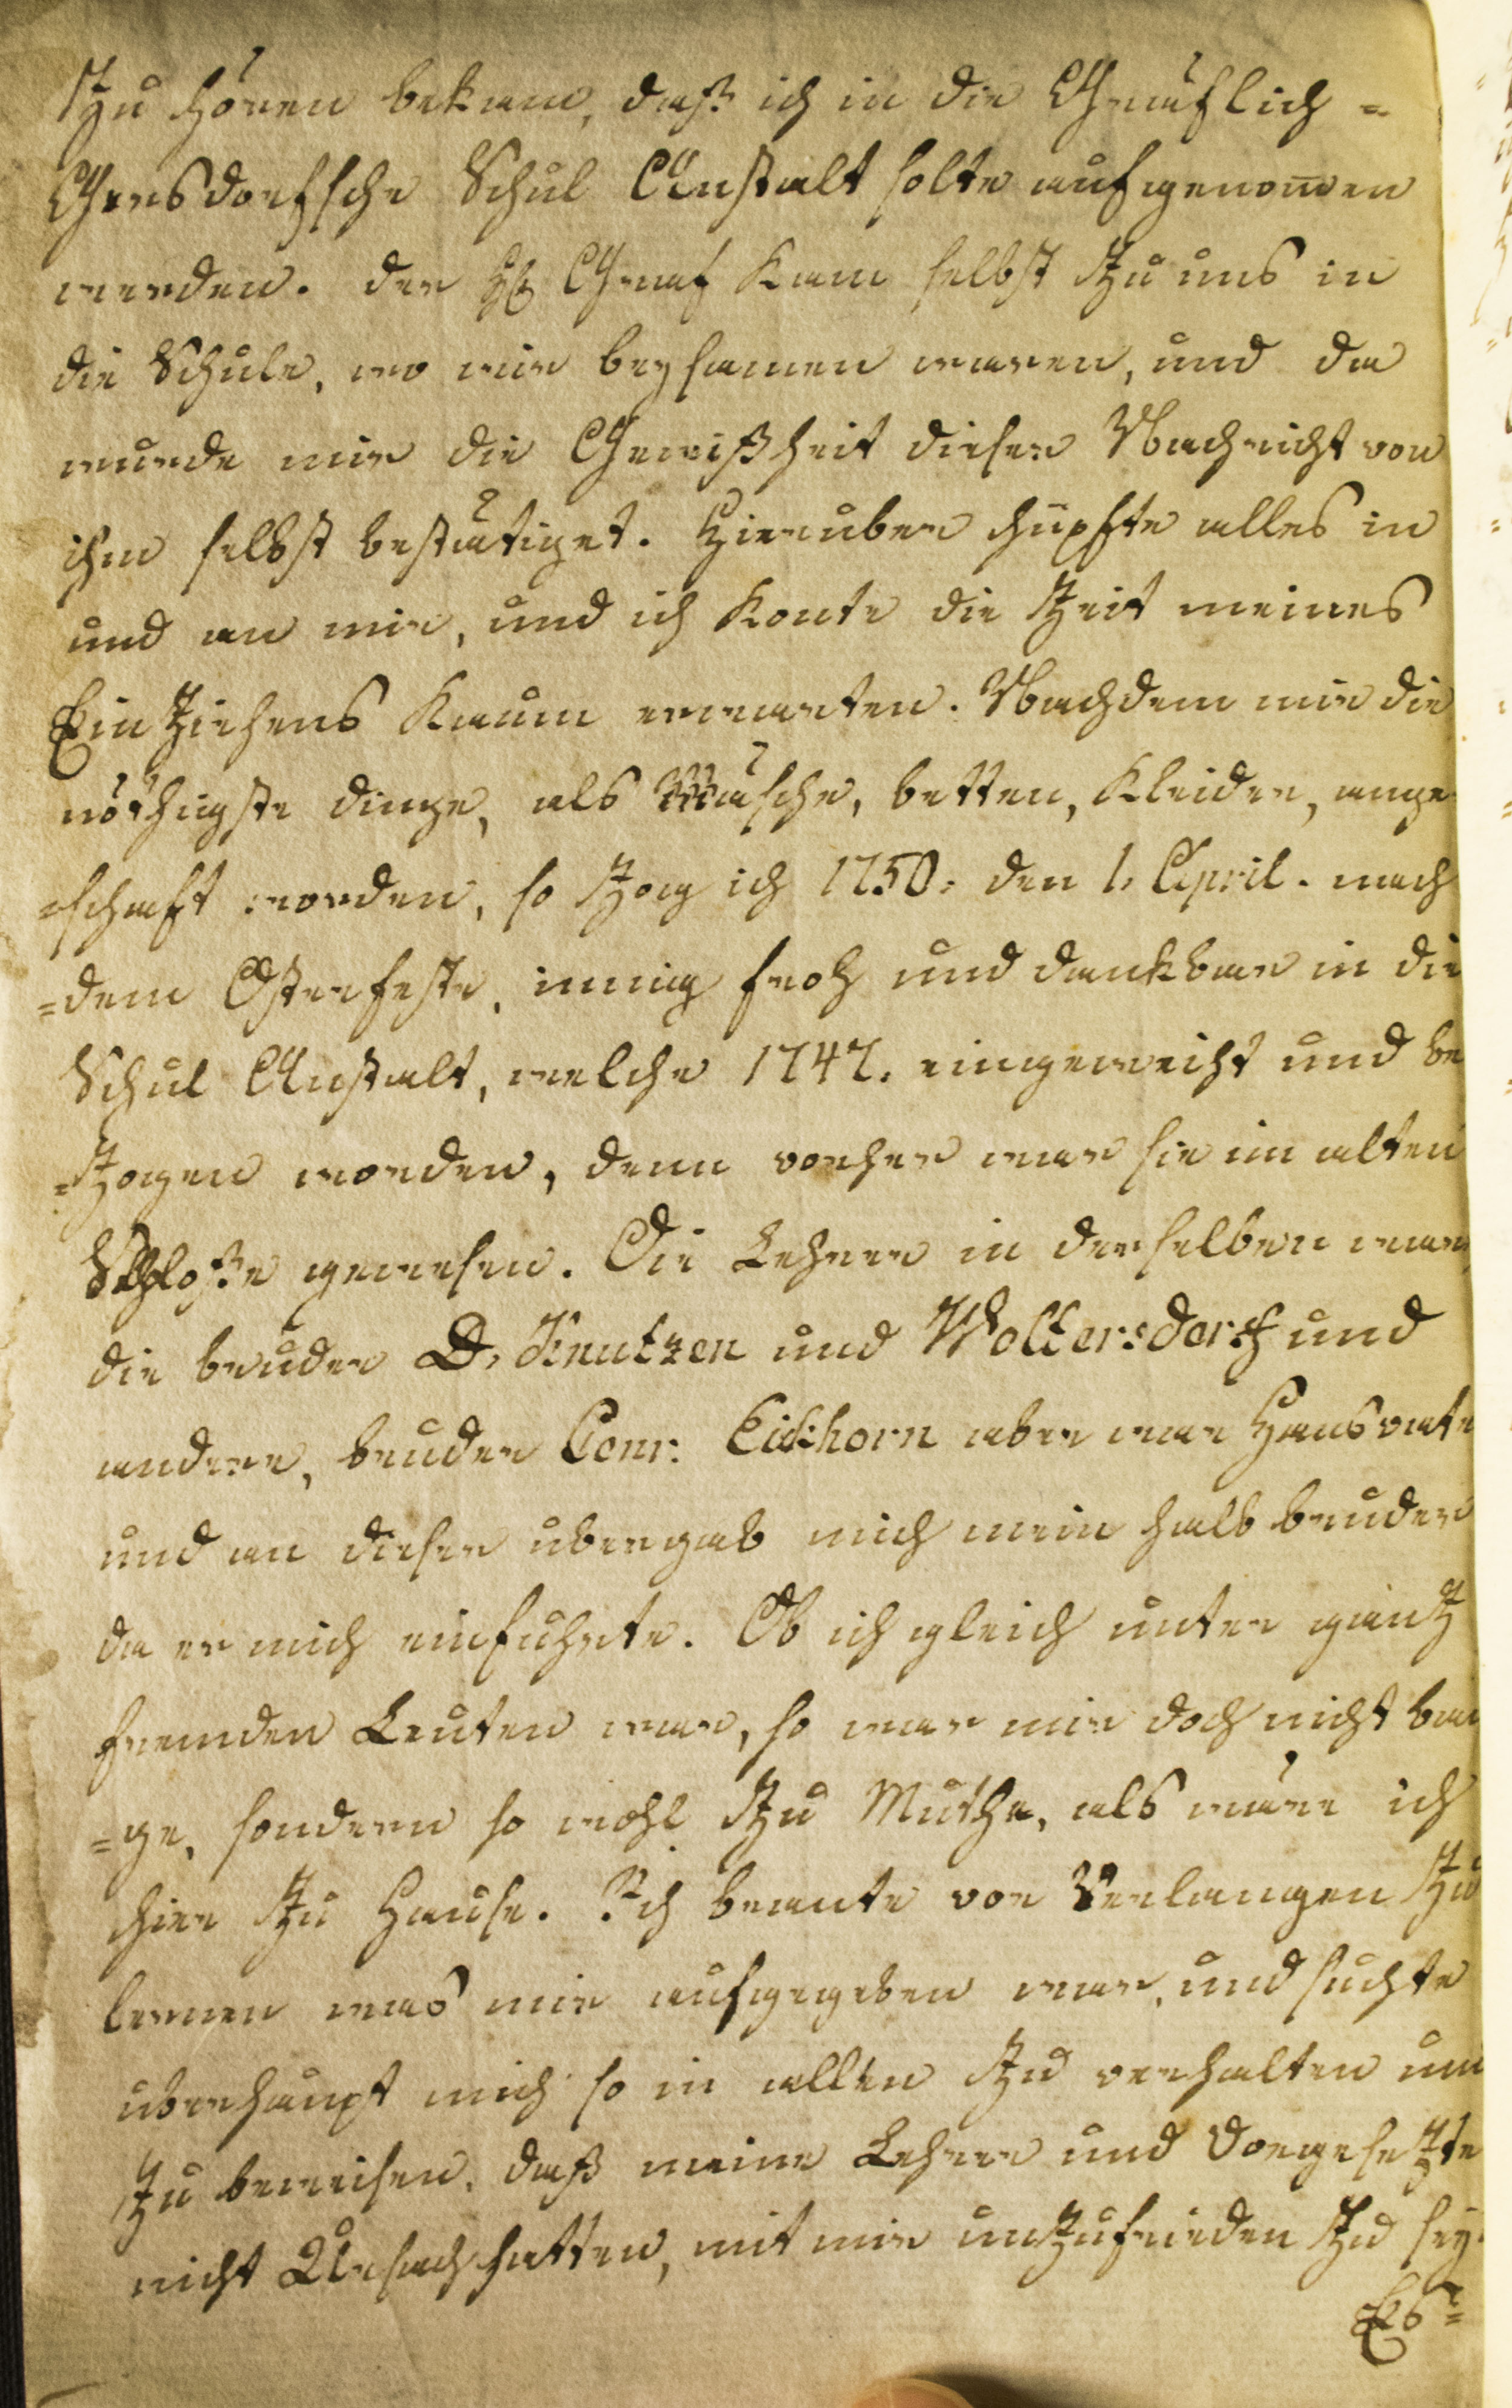 Zu hören bekam, daß ich in die Gräflich=
Gersdorfsche Schul Anstalt solte aufgenom̄en
werden. der H Graf Kam selbst Zu uns in
die Schule, wo wir beysamen waren, und da
wurde mir die Gewißheit dieser Nachricht von
ihm selbst bestätiget. Hieruber hüpfte alles in
und an mir, und ich Konte die Zeit meines
Ein Ziehens Kaum erwarten. Nachdem mir die
nöthigste dinge, als Wäsche, betten, Kleider, ange
=schaft worden, so Zog ich 1750. den 1. April. nach
=dem Osterfeste, innig froh und dankbar in die
Schul Anstalt, welche 1747. eingeweiht und be
=Zogen worden, denn vorher war sie im alten
Schloße gewesen. Die Lehrer in derselben waren
die bruder D. Knutzen und Woltersdorf und
andere, bruder Conr. Eickhorn aber war Hausvate
und an dieser ubergab mich mein halb bruder
da er mich einfuhrte. Ob ich gleich unter gantz
fremden Leuten war, so war mir doch nicht ban
=ge, sondern so wohl Zu Muthe, als wäre ich
hier Zu Hause. Ich brante vor Verlangen Zu
lernen was mir aufgegeben war, und suchte
uberhaupt mich so in allen Zu verhalten und
Zu beweisen, daß meine Lehrer und Vorgesetzte
nicht Ursach hatten, mit mir unzufrieden Zu sey.
Es=